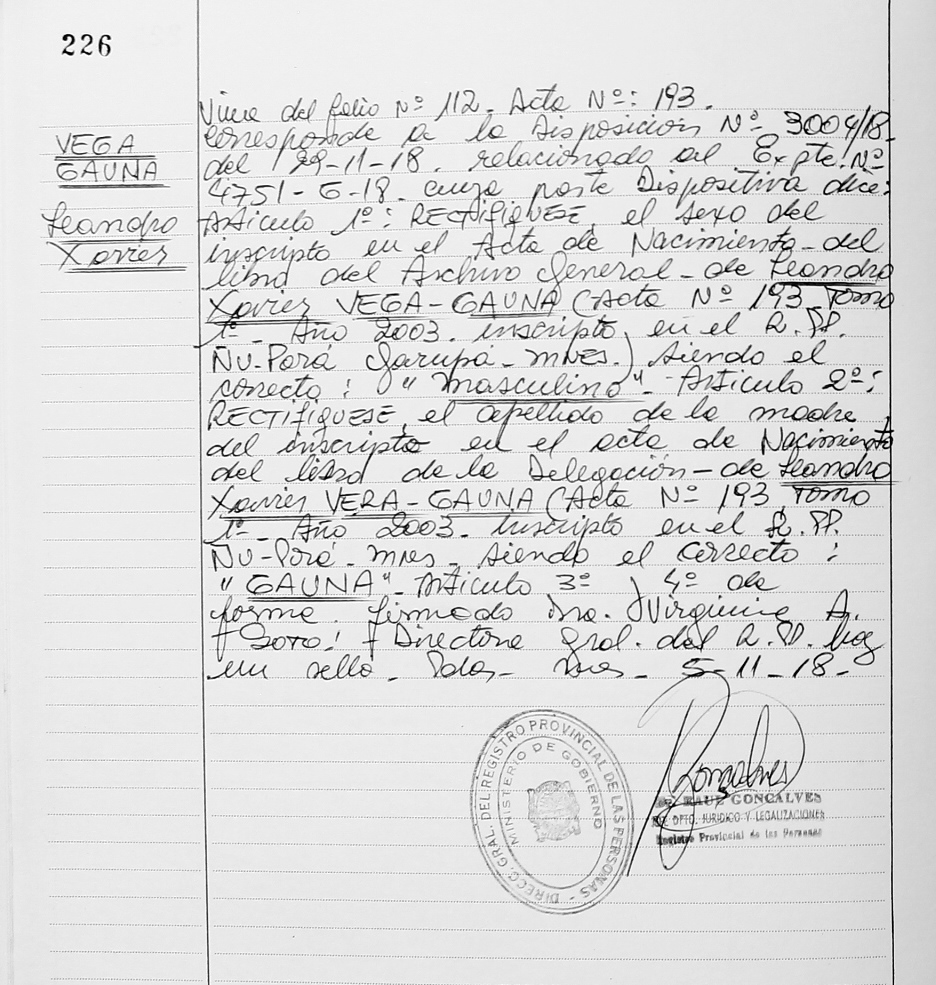 226
VEGA
GAUNA
Leandro
Xavier
Viene del folio Nº 112. Acta Nº: 193.
Corresponde a la Disposición Nº 3004/18.
del 29-11-18. relacionado al Expte. Nº
4751-G-18. cuya parte Dispositiva dice:
Articulo 1º: RECTIFIQUESE, el sexo del
inscripto en el Acta de Nacimiento - del
libro del Archivo General - de Leandro
Xavier VEGA-GAUNA (Acta Nº 193 Tomo
1º - Año 2003. inscripto, en el R. PP.
Ñu-Porá Garupá - mnes.) siendo el
correcto: "masculino" - Articulo 2º:
RECTIFIQUESE, el apellido de la madre
del inscripto en el acta de Nacimiento
del libro de la Delegación - de Leandro
Xavier VERA-GAUNA (Acta Nº 193 Tomo
1º - Año 2003. inscripto en el R. PP.
Ñu-Porá - mnes - siendo el correcto:
"GAUNA" - Articulo 3º y 4º de
forma. firmado Dra. Virginia A.
Soto. Directora Gral. del R.P. hay
un sello - Pdas - mnes - 5-11-18 -
DIRECC. GRAL. DEL REGISTRO PROVINCIAL DE LAS PERSONAS -
MINISTERIO DE GOBIERNO
Goncalves
Dr. RAUL GONCALVES
DPTO. JURIDICO Y LEGALIZACIONES
Registro Provincial de las Personas